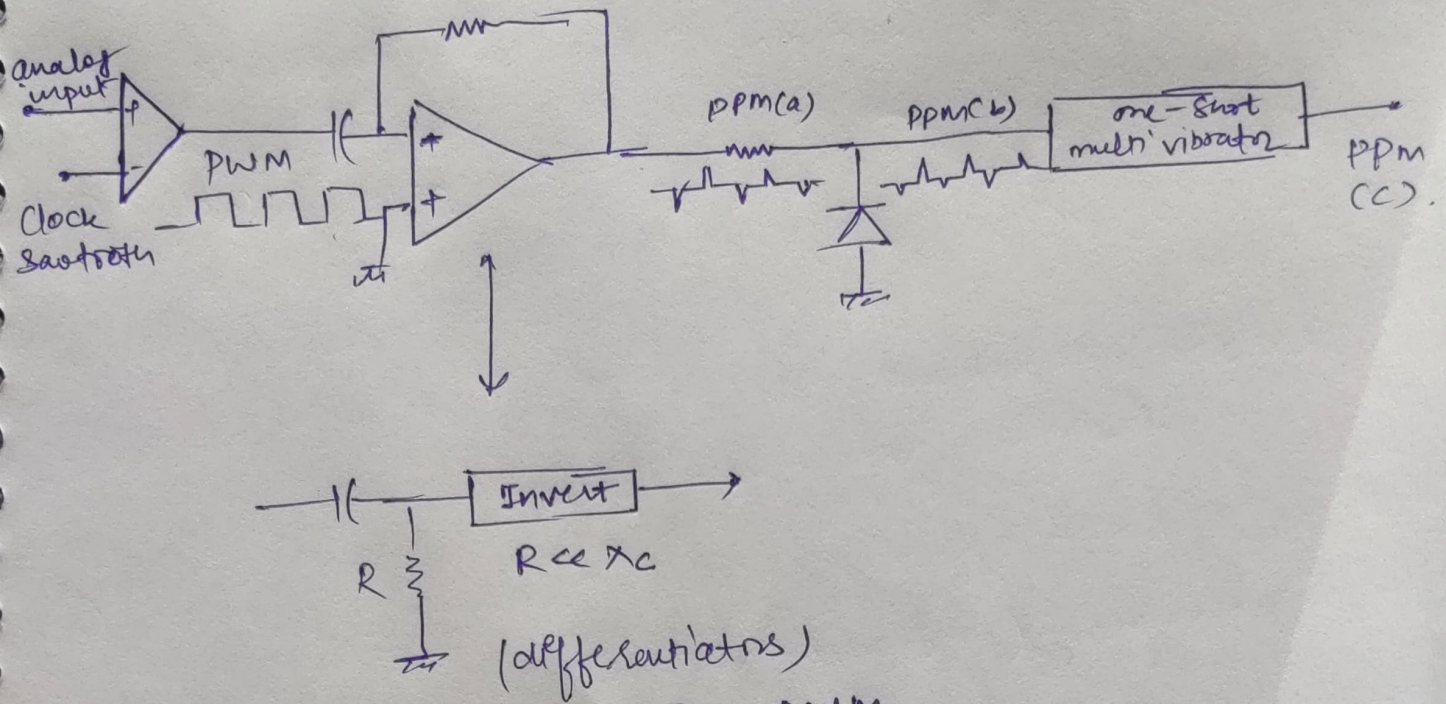 analog
input
+
-
Clock
Sawtooth
PWM
+
+
PPM(a)
PPM(b)
one-Shot
multi vibrator
PPM
(C).
Invert
R
R << Xc
(differentiators)